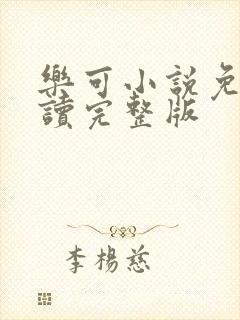 樂可小說免
讀完整版
李楊慈